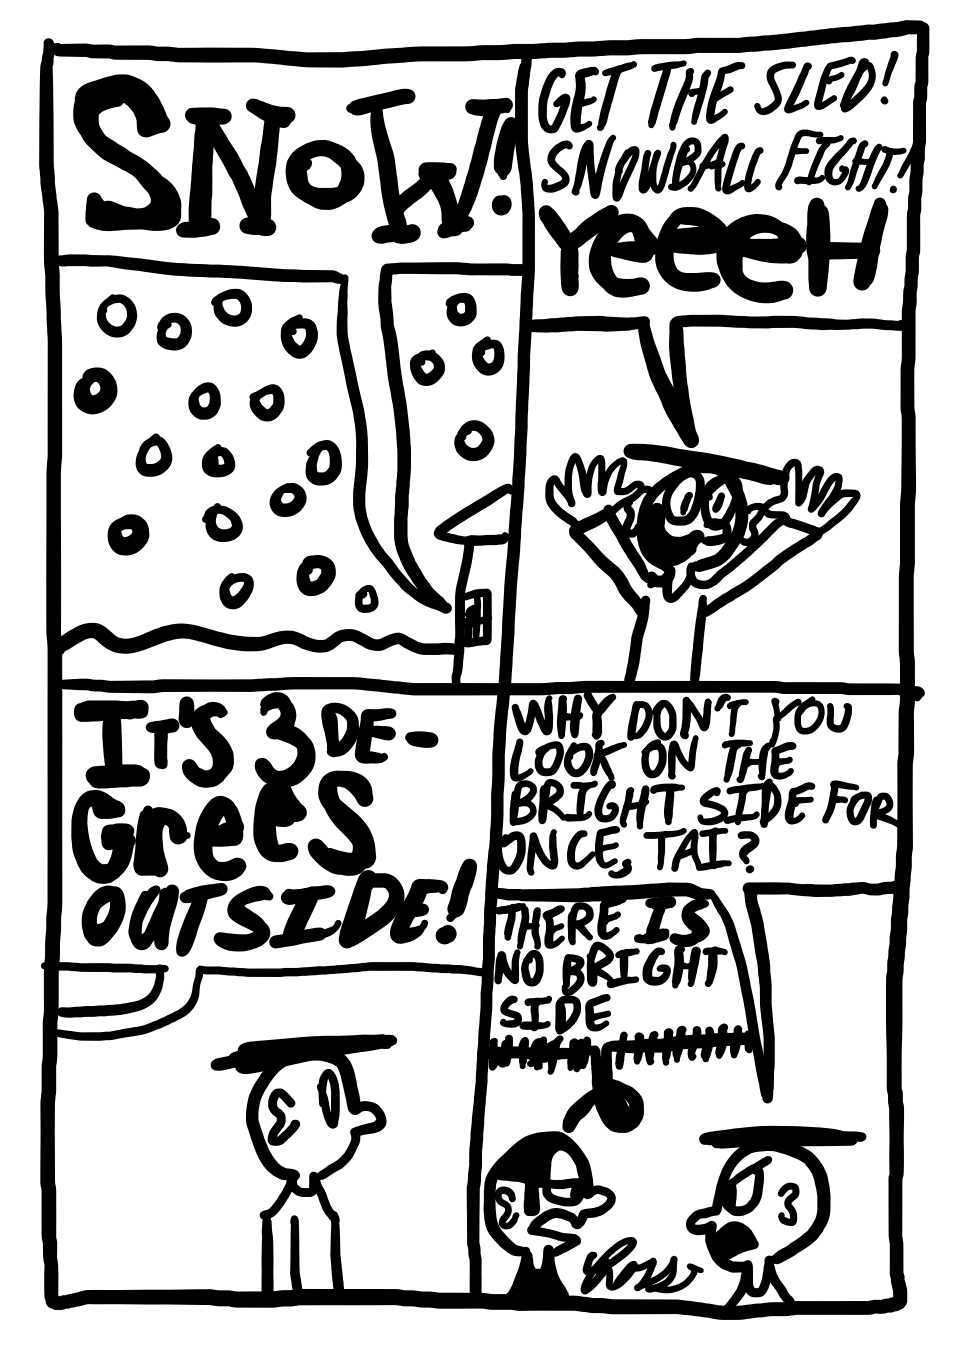 SNOW!
GET THE SLED!
SNOWBALL FIGHT!
YeeeH
IT'S 3 DE-
GreeS
OUTSIDE!
WHY DON'T YOU
LOOK ON THE
BRIGHT SIDE FOR
ONCE, TAI?
THERE IS
NO BRIGHT
SIDE
Ross